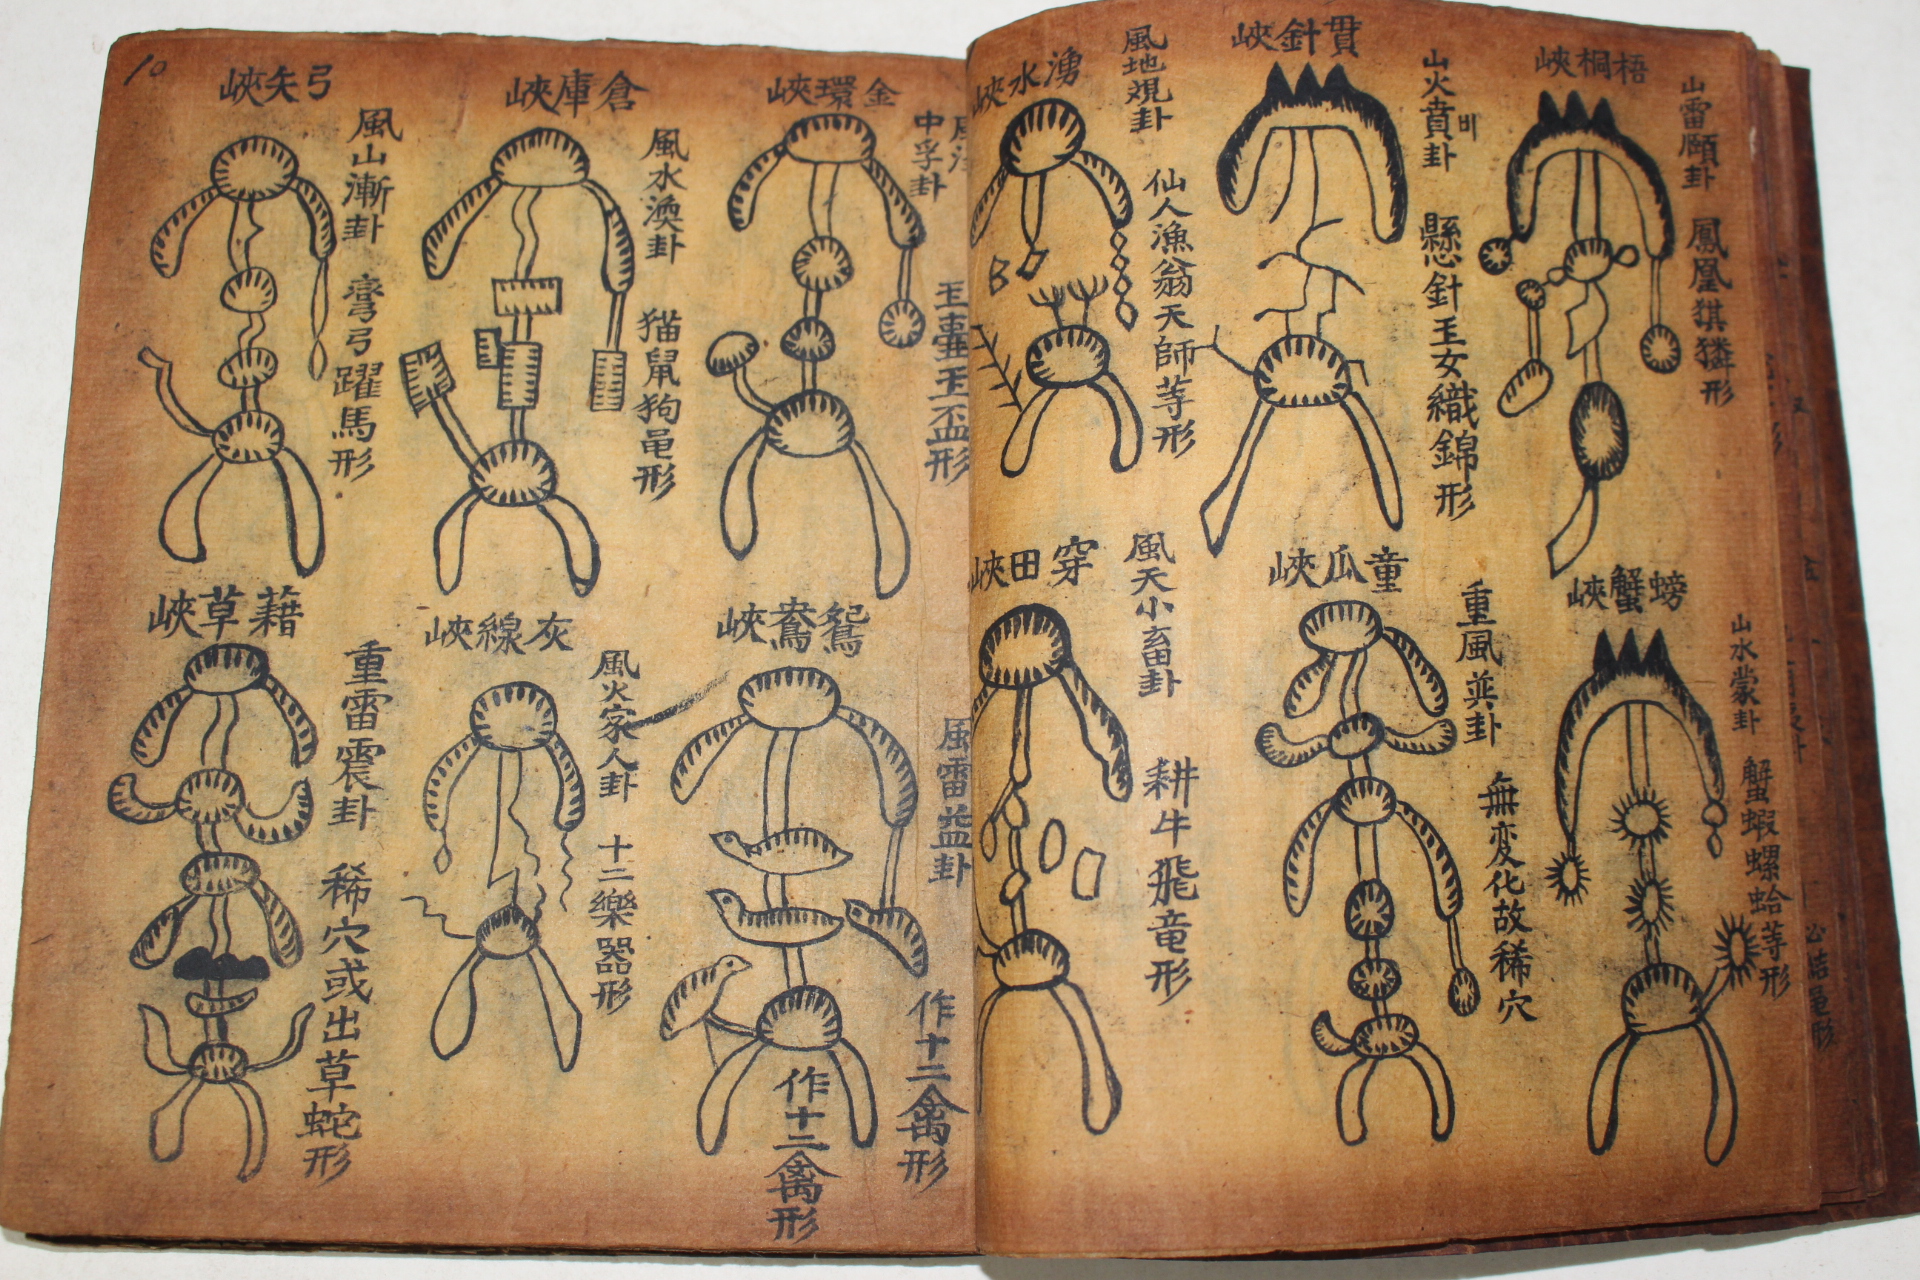 梧桐峽
山雷頤卦
鳳凰猉獜形
貫針峽
山火賁卦
비
懸針玉女織錦形
湧水峽
風地观卦
仙人漁翁天師等形
螃蟹峽
山水蒙卦
蟹蝦螺蛤等形
童瓜峽
重風巽卦
無変化故稀穴
穿田峽
風天小畜卦
耕牛飛竜形
金環峽
中孚卦
玉壷玉盃形
倉庫峽
風水渙卦
猫鼠狗黾形
弓矢峽
風山漸卦
彎弓躍馬形
10
鴛鴦峽
風雷益卦
作十二禽形
作十二禽形
灰線峽
風火家人卦
十二樂器形
藉草峽
重雷震卦
稀穴或出草蛇形